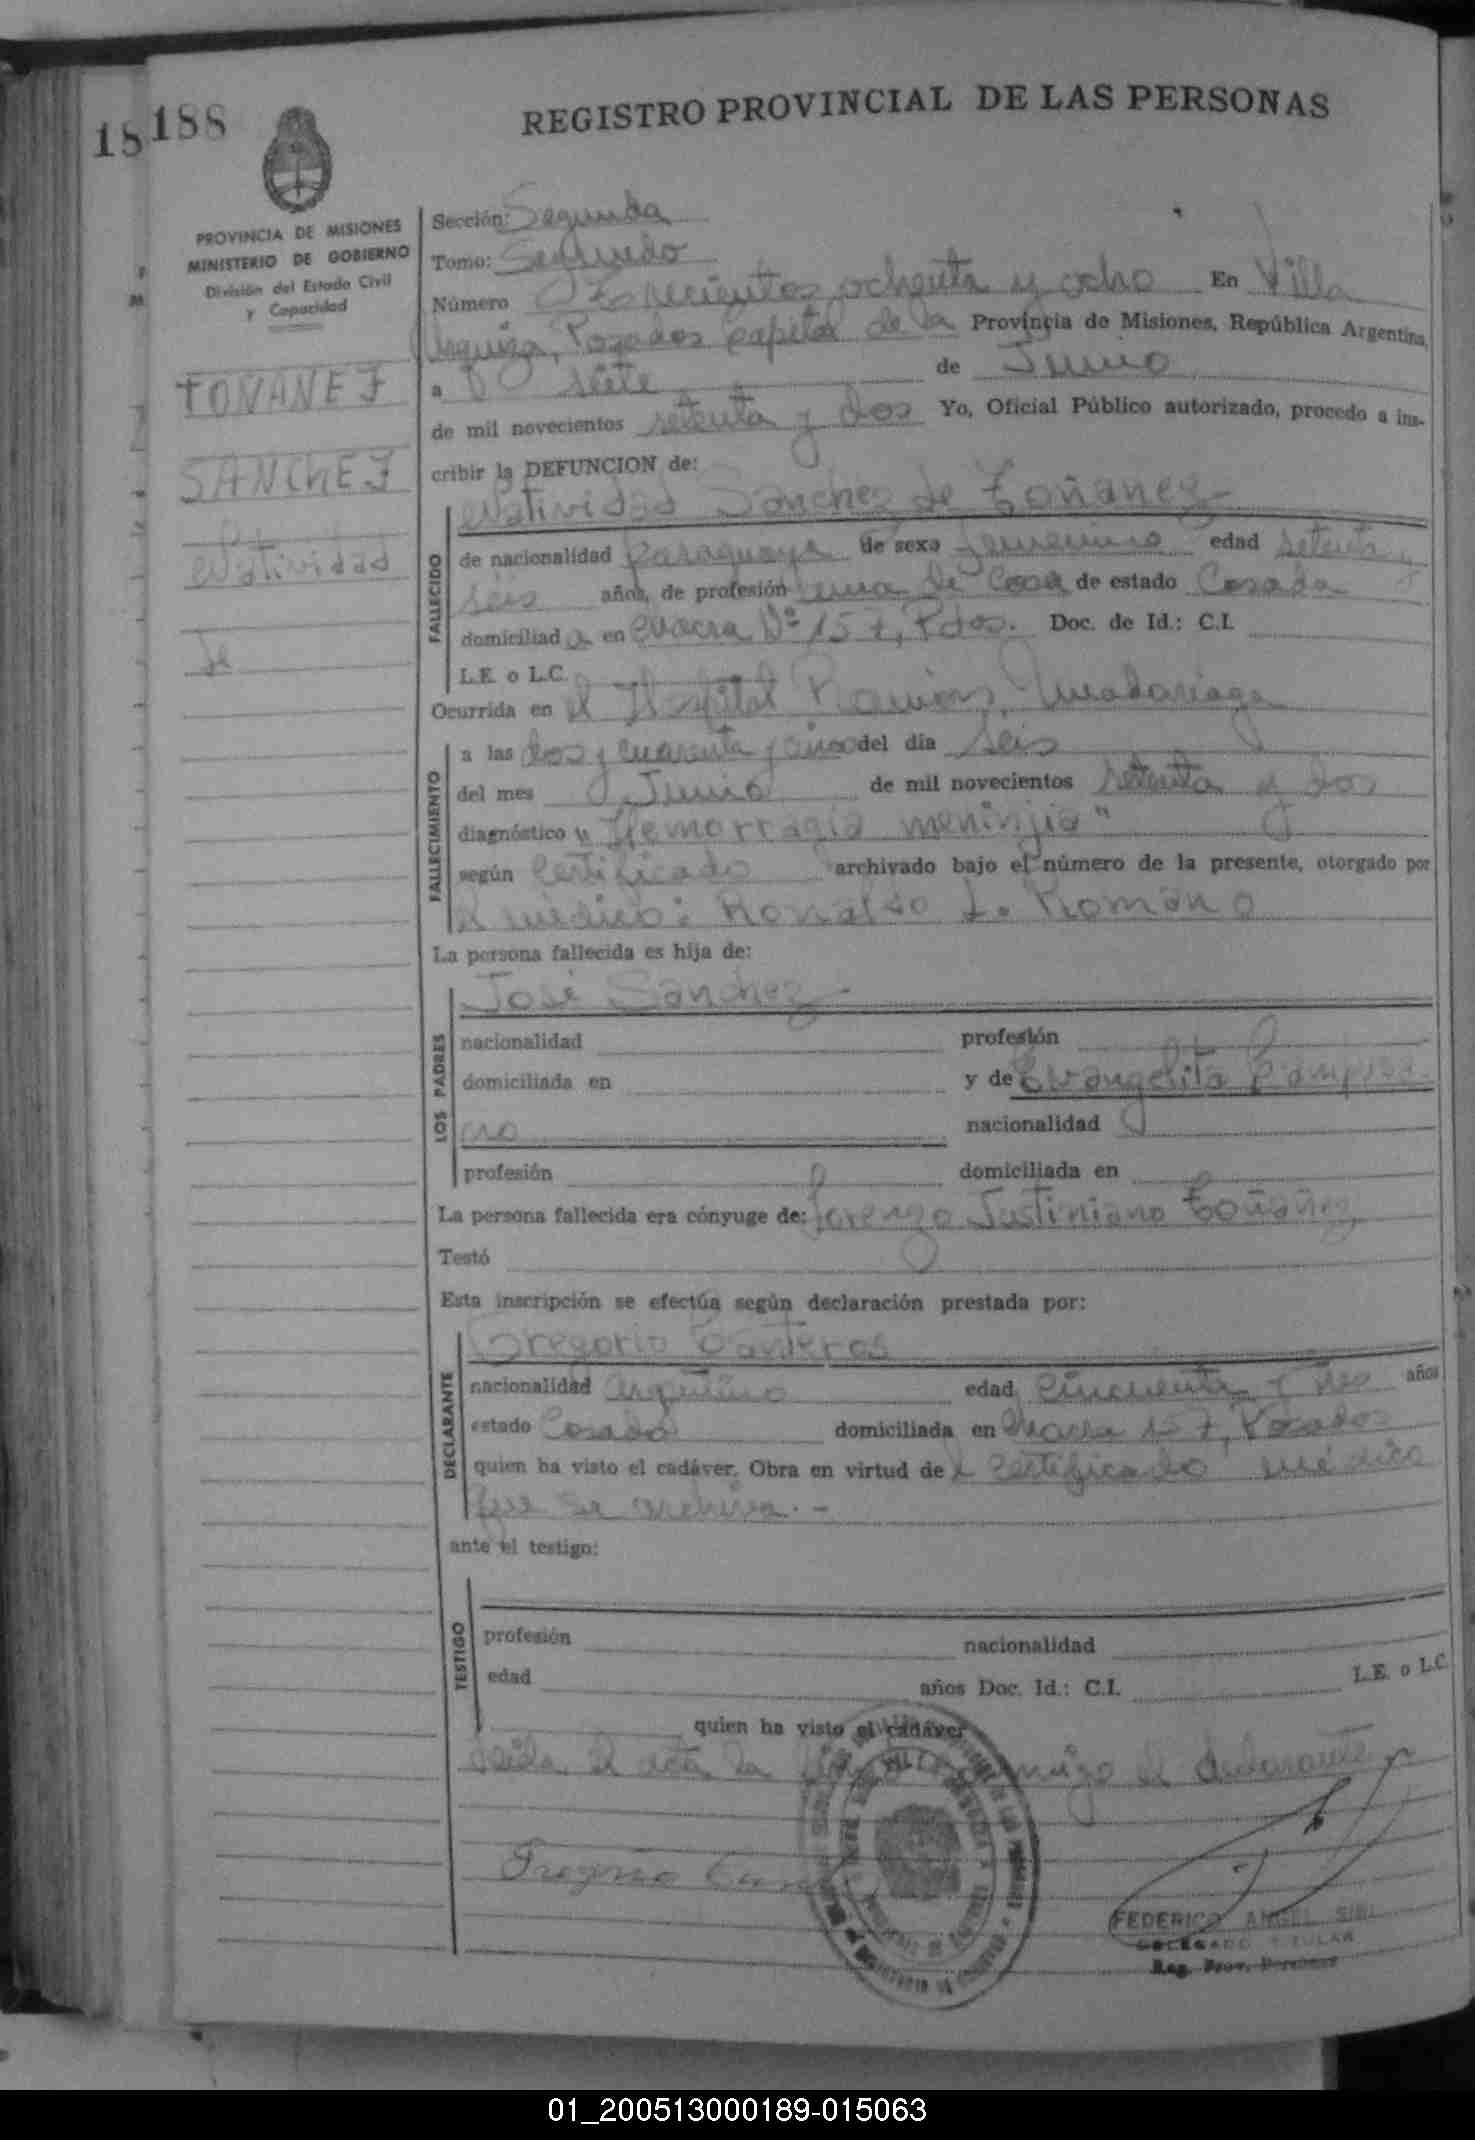 18 188
REGISTRO PROVINCIAL DE LAS PERSONAS
PROVINCIA DE MISIONES
MINISTERIO DE GOBIERNO
División del Estado Civil
y Capacidad
TOÑANEZ
SANCHEZ
Natividad
de
Sección: Segunda
Tomo: Segundo
Número Trescientos ochenta y ocho En Villa
Urquiza, Posadas Capital de la Provincia de Misiones, República Argentina,
a siete de Junio
de mil novecientos setenta y dos Yo, Oficial Público autorizado, procedo a ins-
cribir la DEFUNCION de:
Natividad Sanchez de Toñanez
FALLECIDO
de nacionalidad Paraguaya de sexo femenino edad setenta y
seis años, de profesión ama de Casa de estado Casada
domiciliad a en Chacra Nº 157, Pdas. Doc. de Id.: C.I.
L.E. o L.C.
Ocurrida en el Hospital Ramón Madariaga
FALLECIMIENTO
a las dos y cuarenta y cinco del día seis
del mes Junio de mil novecientos setenta y dos
diagnóstico "Hemorragia meninjia"
según Certificado archivado bajo el número de la presente, otorgado por
el médico: Ronaldo L. Romano
La persona fallecida es hija de:
LOS PADRES
José Sanchez
nacionalidad profesión
domiciliada en y de Evangelita
nacionalidad
profesión domiciliada en
La persona fallecida era cónyuge de: Lorenzo Justiniano Toñañez
Testó
Esta inscripción se efectúa según declaración prestada por:
DECLARANTE
Gregorio Canteros
nacionalidad argentino edad Cincuenta y tres años
estado Casado domiciliada en Chacra 157, Posadas
quien ha visto el cadáver. Obra en virtud de l certificado médico
que se archiva.-
ante el testigo:
TESTIGO
profesión nacionalidad
edad años Doc. Id.: C.I. L.E. o L.C.
quien ha visto el cadáver
Leida el acta la conmigo el declarante
Gregorio
FEDERICO ANGEL
DELEGADO TITULAR
Reg. Prov. Personas
01_200513000189-015063